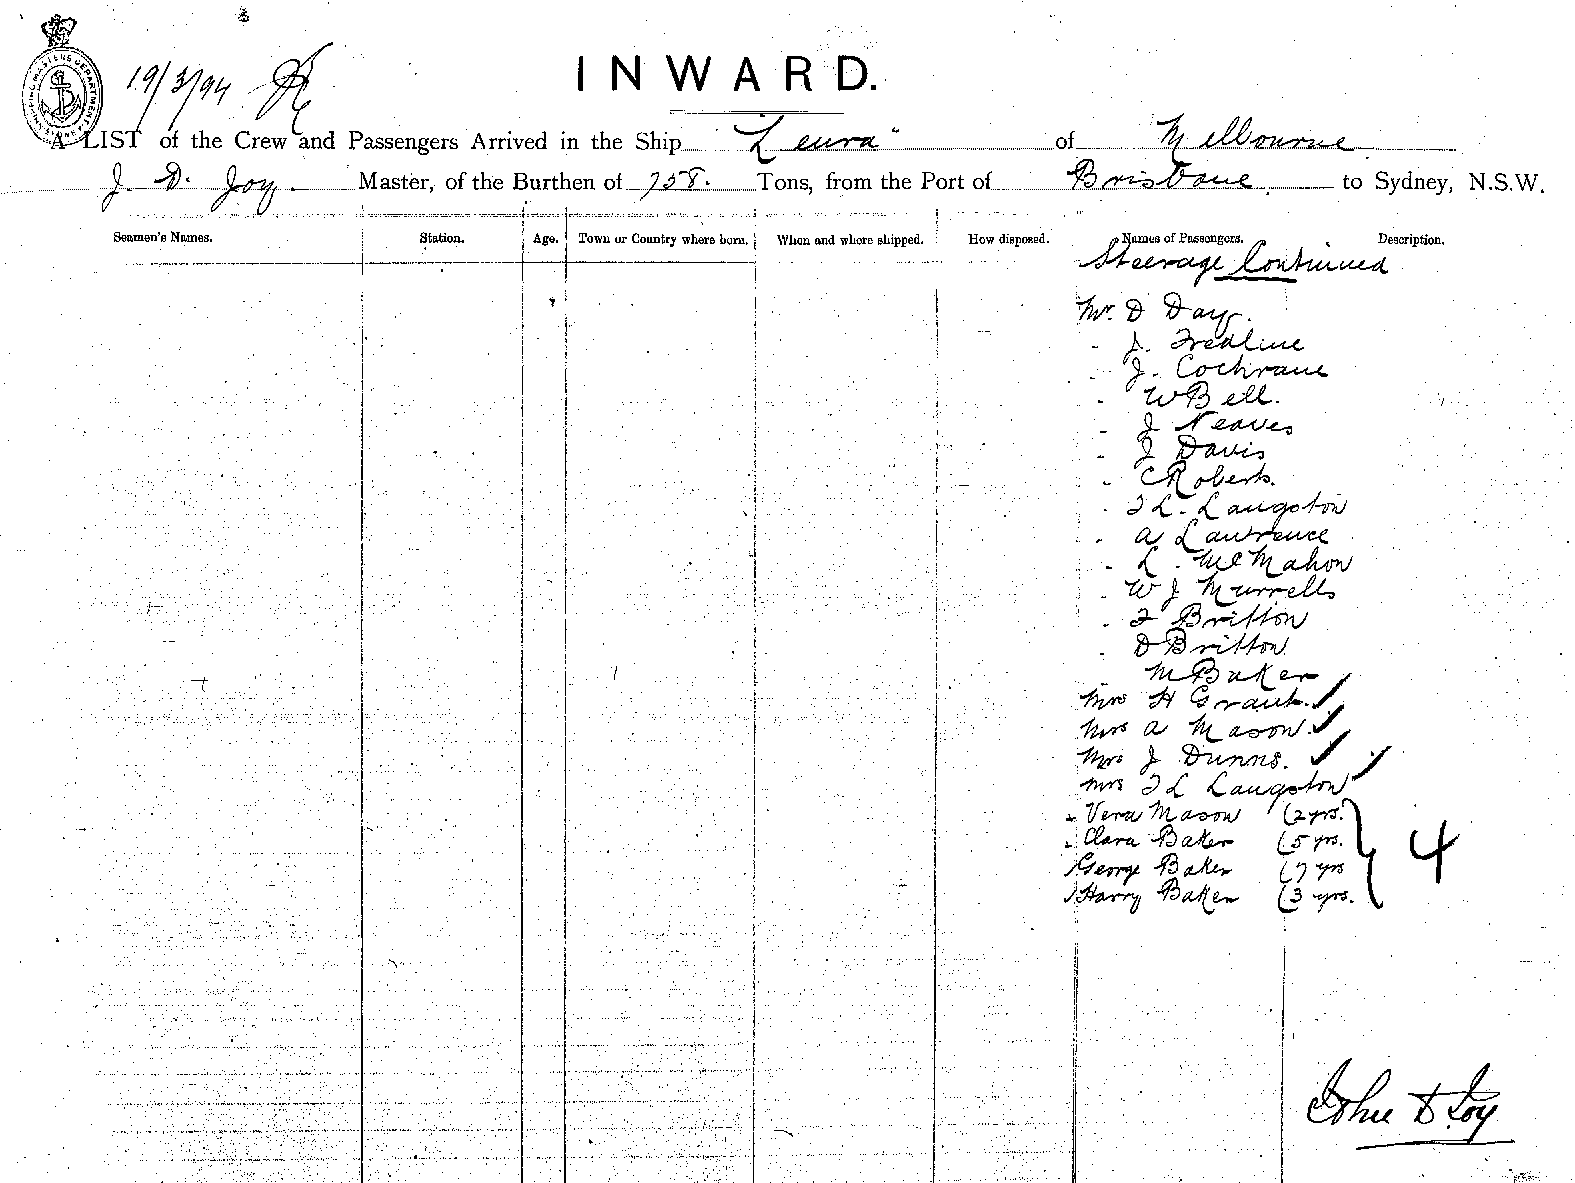 19/3/94
INWARD.
A LIST of the Crew and Passengers Arrived in the Ship "Leura" of Melbourne
J. D. Joy. Master, of the Burthen of 758. Tons, from the Port of Brisbane to Sydney, N.S.W.
Seamen's Names. Station. Age. Town or Country where born. When and where shipped. How disposed. Names of Passengers. Description.
Steerage Continued
Mr. D Day.
- J. Fredline
- J. Cochrane
- W Bell.
- J Neaves
- J Davis
- C Roberts.
- T L. Langston
- A Lawrence
- L. McMahon
- W J Murrells
- F Britton
- D Britton
M Baker
Mrs H Grant. ✓
Mrs A Mason. ✓
Mrs J Dunns. ✓
Mrs T L Langston ✓
Vera Mason (2 yrs.
Clara Baker (5 yrs.
George Baker (7 yrs
Harry Baker (3 yrs.
4
John D Joy